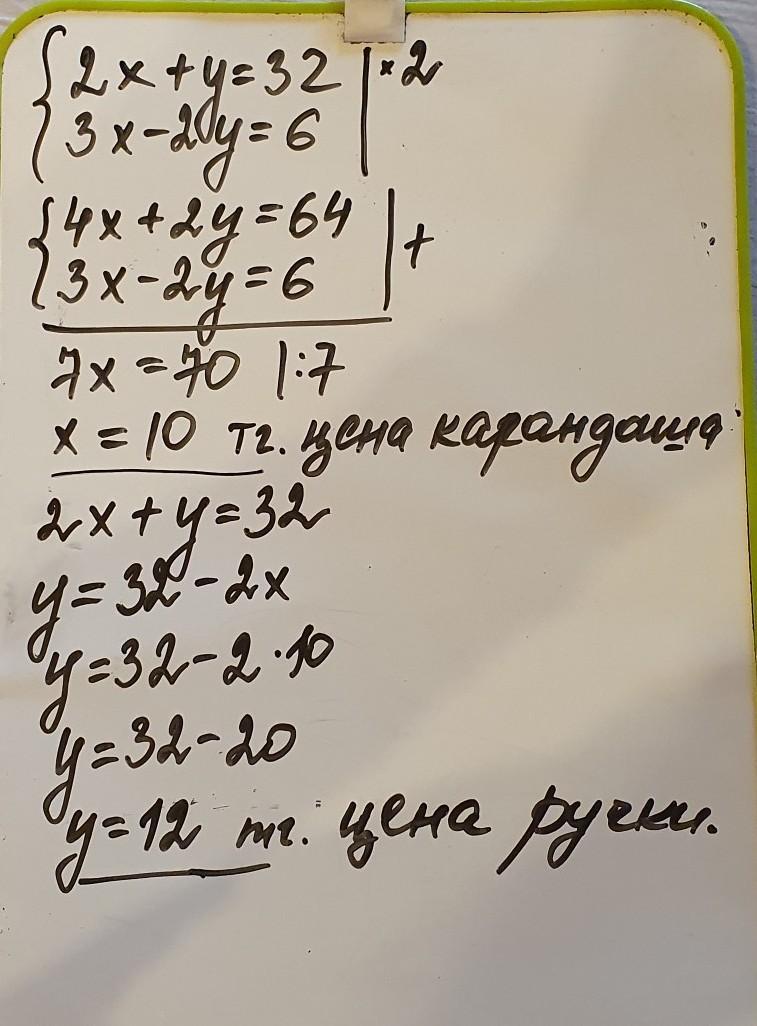 { 2x + y = 32 | × 2
3x - 2y = 6
{ 4x + 2y = 64 | +
3x - 2y = 6
7x = 70 | : 7
x = 10 тг. цена карандаша
2x + y = 32
y = 32 - 2x
y = 32 - 2 · 10
y = 32 - 20
y = 12 тг. цена ручки.